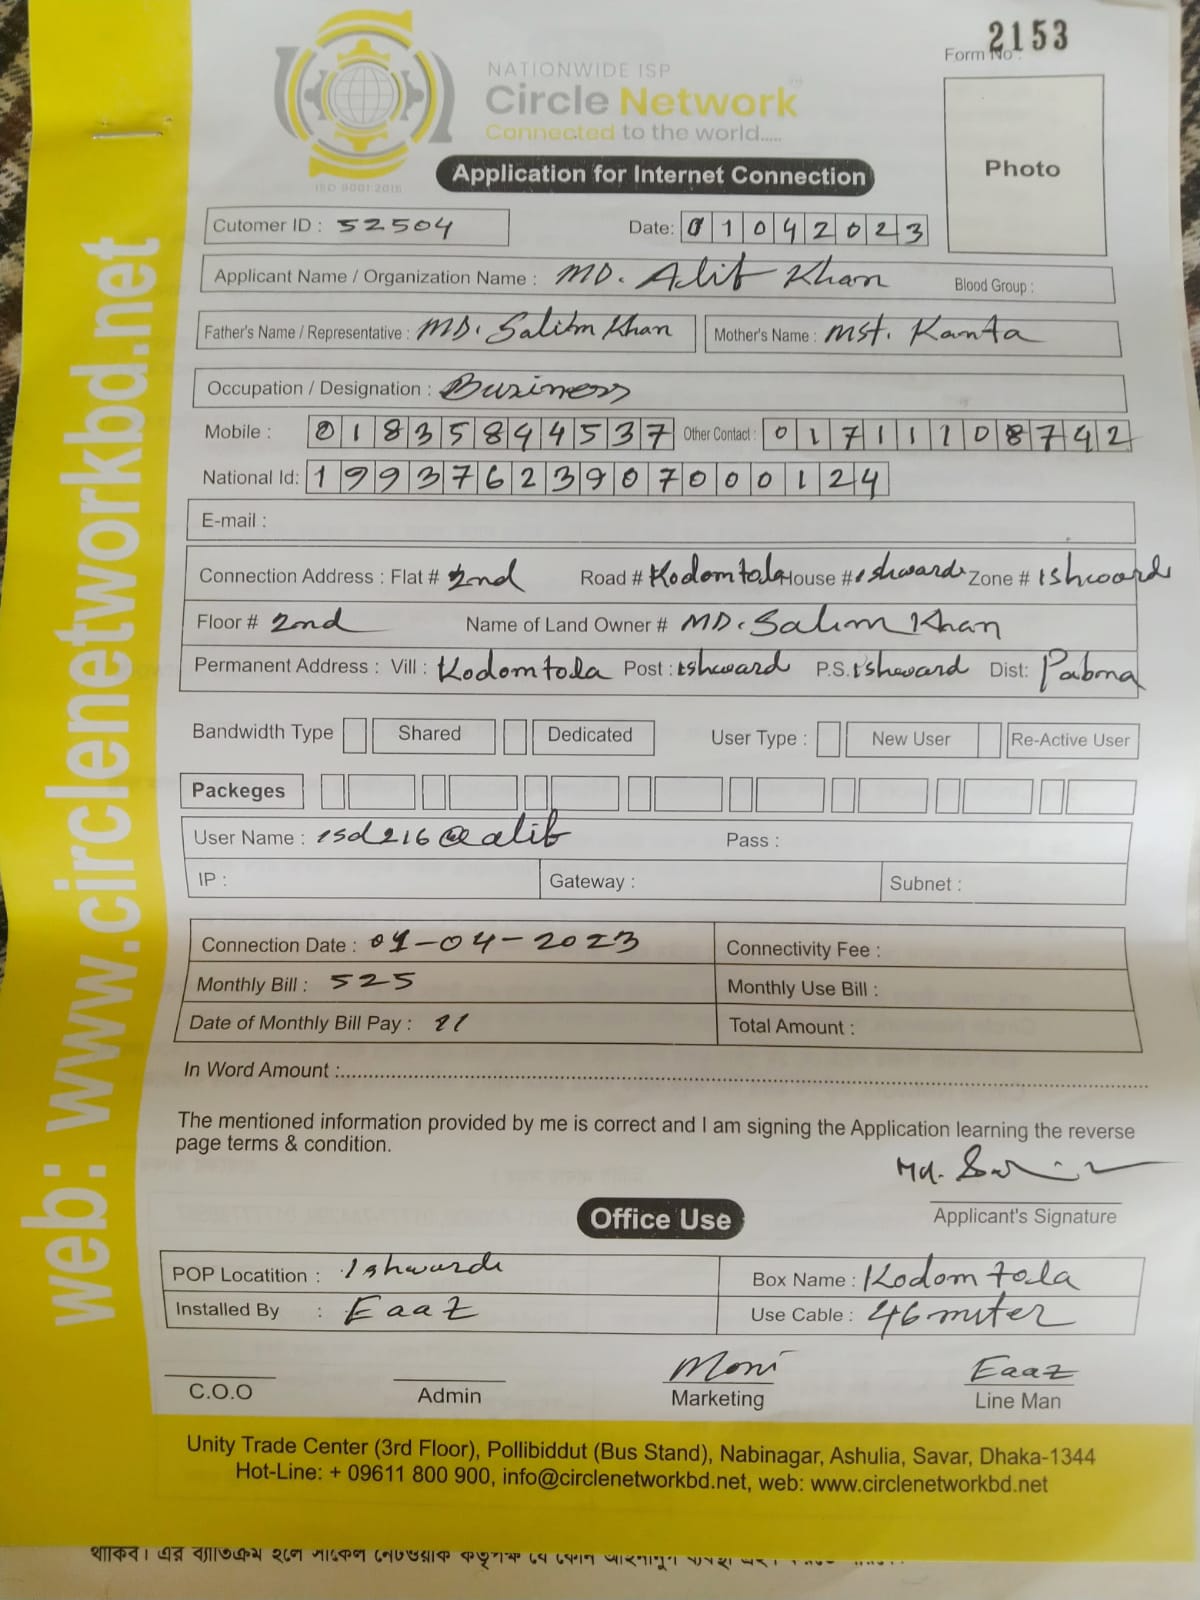 2153
Form No :
NATIONWIDE ISP
Circle Network
Connected to the world.....
ISO 9001:2015
Application for Internet Connection
Photo
Cutomer ID : 52504 Date: 01042023
Applicant Name / Organization Name : MD. Alif Khan Blood Group :
Father's Name / Representative : MD. Salim Khan Mother's Name : Mst. Kanta
Occupation / Designation : Business
Mobile : 01835844537 Other Contact : 01711108742
National Id: 19937623907000124
E-mail :
Connection Address : Flat # 2nd Road # Kodomtola House # Ishwardi Zone # Ishwardi
Floor # 2nd Name of Land Owner # MD. Salim Khan
Permanent Address : Vill : Kodomtola Post : Ishwardi P.S. Ishwardi Dist: Pabna
Bandwidth Type Shared Dedicated User Type : New User Re-Active User
Packeges
User Name : isd216@alif Pass :
IP : Gateway : Subnet :
Connection Date : 01-04-2023 Connectivity Fee :
Monthly Bill : 525 Monthly Use Bill :
Date of Monthly Bill Pay : 11 Total Amount :
In Word Amount :
The mentioned information provided by me is correct and I am signing the Application learning the reverse
page terms & condition.
Md.
Applicant's Signature
Office Use
POP Locatition : Ishwardi Box Name : Kodomtola
Installed By : Eaaz Use Cable : 46 miter
Moni Eaaz
C.O.O Admin Marketing Line Man
Unity Trade Center (3rd Floor), Pollibiddut (Bus Stand), Nabinagar, Ashulia, Savar, Dhaka-1344
Hot-Line: + 09611 800 900, info@circlenetworkbd.net, web: www.circlenetworkbd.net
web: www.circlenetworkbd.net
থাকিব। এর ব্যতিক্রম হলে সার্কেল নেটওয়ার্ক কর্তৃপক্ষ যে কোন